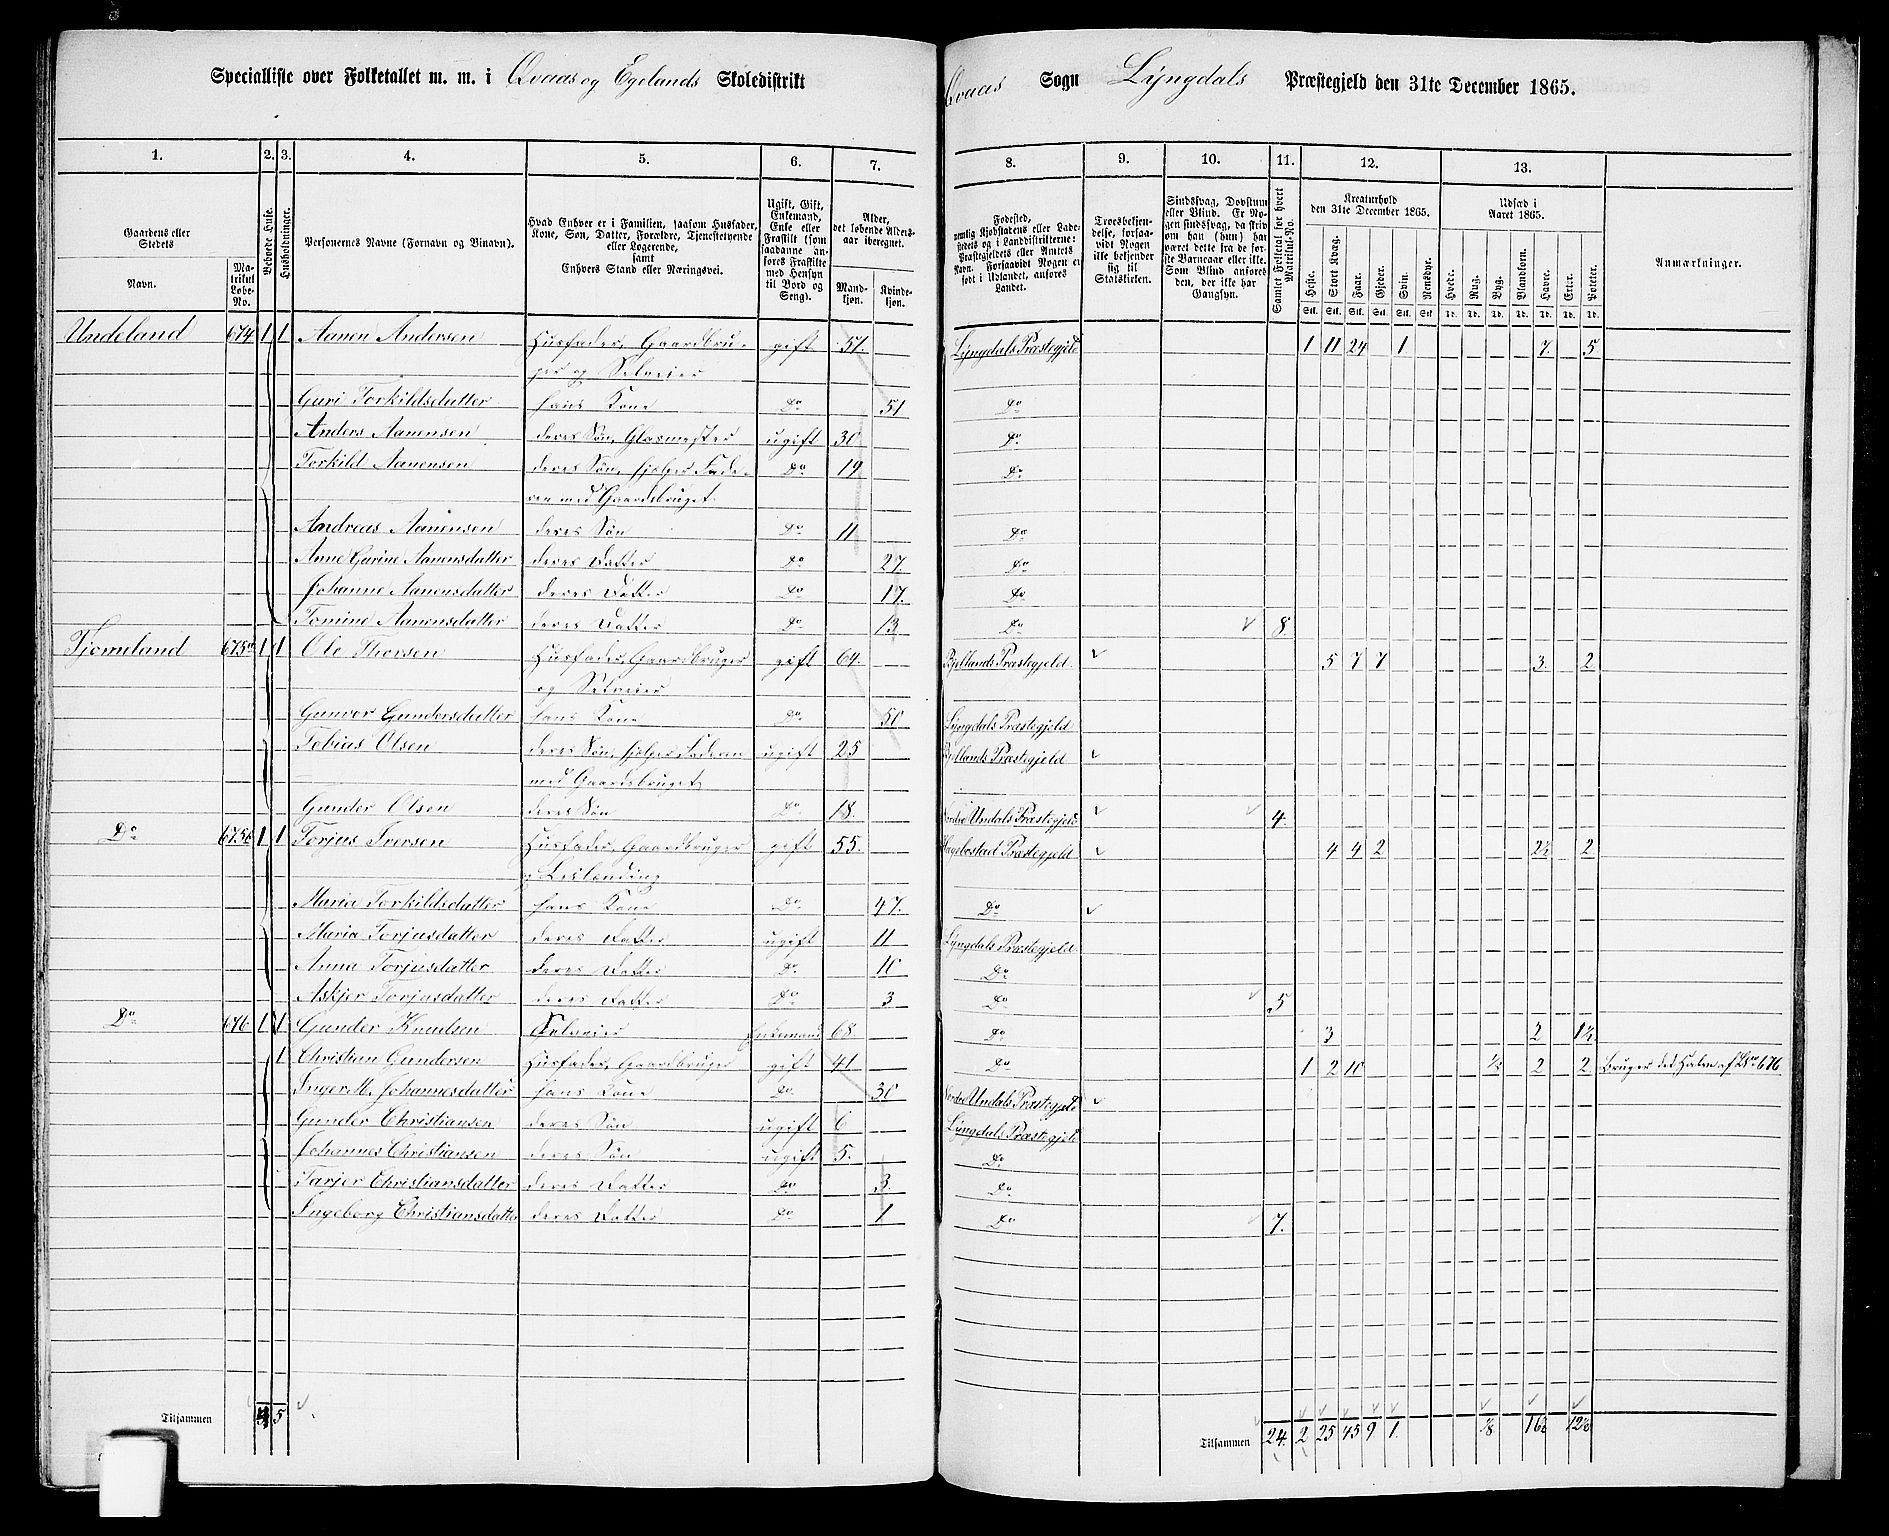 Specialliste over Folketallet m. m. i Qvaas og Egelands Skoledistrikt
Qvaas Sogn Lyngdals Præstegjeld den 31te December 1865.
1. 2. 3. 4. 5. 6. 7. 8. 9. 10. 11. 12. 13.
Gaardens eller Stedets
Navn.
Matrikul Løbe-No.
Beboede Huse.
Husholdninger.
Personernes Navne (Fornavn og Binavn).
Hvad Enhver er i Familien, saasom Husfader, Kone, Søn, Datter, Forældre, Tjenestetyende eller Logerende,
samt
Enhvers Stand eller Næringsvei.
Ugift, Gift, Enkemand, Enke eller Fraskilt (som saadanne anføres Fraskilte med Hensyn til Bord og Seng).
Alder, det løbende Alders-aar iberegnet.
Mandkjøn. Kvindekjøn.
Fødested, nemlig Kjøbstadens eller Ladestedets og i Landdistrikterne: Præstegjeldets eller Amtets Navn. Forsaavidt Nogen er født i Udlandet, anføres Landet.
Troesbekjendelse, forsaavidt Nogen ikke bekjender sig til Statskirken.
Sindssvag, Døvstum eller Blind. Er Nogen sindssvag, da skriv om han (hun) har været dette fra de første Barneaar eller ikke. Som Blind anføres den, der ikke har Gangsyn.
Samlet Folketal for hvert Matrikul-No.
Kreaturhold den 31te December 1865.
Heste. Stort Kvæg. Faar. Gjeder. Svin. Rensdyr.
Udsæd i Aaret 1865.
Hvede. Rug. Byg. Blandkorn. Havre. Erter. Poteter.
Anmærkninger.
Stk. Stk. Stk. Stk. Stk. Stk. Td. Td. Td. Td. Td. Td. Td.
Undeland 674 1 1 Aanen Andersen Husfader, Gaardbru- gift 57. Lyngdals Præstegjeld 1 11 24 1 7. 5
ger og Selveier
Guri Torkildsdatter hans Kone Do 51 Do
Anders Aanensen deres Søn, Glasmester ugift 30 Do
Torkild Aanensen deres Søn, hjelper Fade- Do 19 Do
ren med Gaardsbruget
Andreas Aanensen deres Søn Do 11 Do
Anne Gurine Aanensdatter deres Datter Do 27. Do
Johanne Aanensdatter deres Datter Do 17. Do
Tomine Aanensdatter deres Datter Do 13 Do 8.
Tjomeland 675a 1 1 Ole Thorsen Husfader, Gaardbruger gift 64. Bjellands Præstegjeld. 5 7 7 3. 2
og Selveier
Gunvor Gundersdatter hans Kone Do 50 Lyngdals Præstegjeld
Tobias Olsen deres Søn, hjelper Faderen ugift 25 Bjellands Præstegjeld
med Gaardsbruget
Gunder Olsen deres Søn Do 18. Nordre Undals Præstegjeld 4.
Do 675b 1 1 Torjus Iversen Husfader, Gaardbruger gift 55. Hægebostad Præstegjeld 4 4 2 2½ 2
og Leilænding
Maria Torkildsdatter hans Kone Do 47. Do
Maria Torjusdatter deres Datter ugift 11 Lyngdals Præstegjeld
Anna Torjusdatter deres Datter Do 10 Do
Askjer Torjusdatter deres Datter Do 3 Do 5
Do 676 1 1 Gunder Knudsen Selveier Enkemand 68. Do 3 2 1½
1 Christian Gundersen Husfader, Gaardbruger gift 41 Do 1 2 10 ½ 2 2 Bruger det Halve af LNo 676
Inger M. Johannesdatter hans Kone Do 30 Nordre Undals Præstegjeld
Gunder Christiansen deres Søn ugift 6 Lyngdals Præstegjeld
Johannes Christiansen deres Søn ugift 5. Do
Tarjer Christiansdatter deres Datter Do 3. Do
Ingeborg Christiansdatter deres Datter Do 1 Do 7.
Tilsammen 4 5
Tilsammen 24. 2 25 45 9 1. ⅛ 16½ 12½